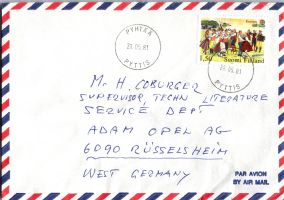 PYHTÄÄ
21.05.81
PYTTIS
Europa
1,50
Suomi Finland
21.05.81
PYTTIS
Mr H, COBURGER
SUPERVISOR, TECHN LITERATURE
SERVICE DEPT
ADAM OPEL AG
6090 RÜSSELSHEIM
WEST GERMANY
PAR AVION
BY AIR MAIL